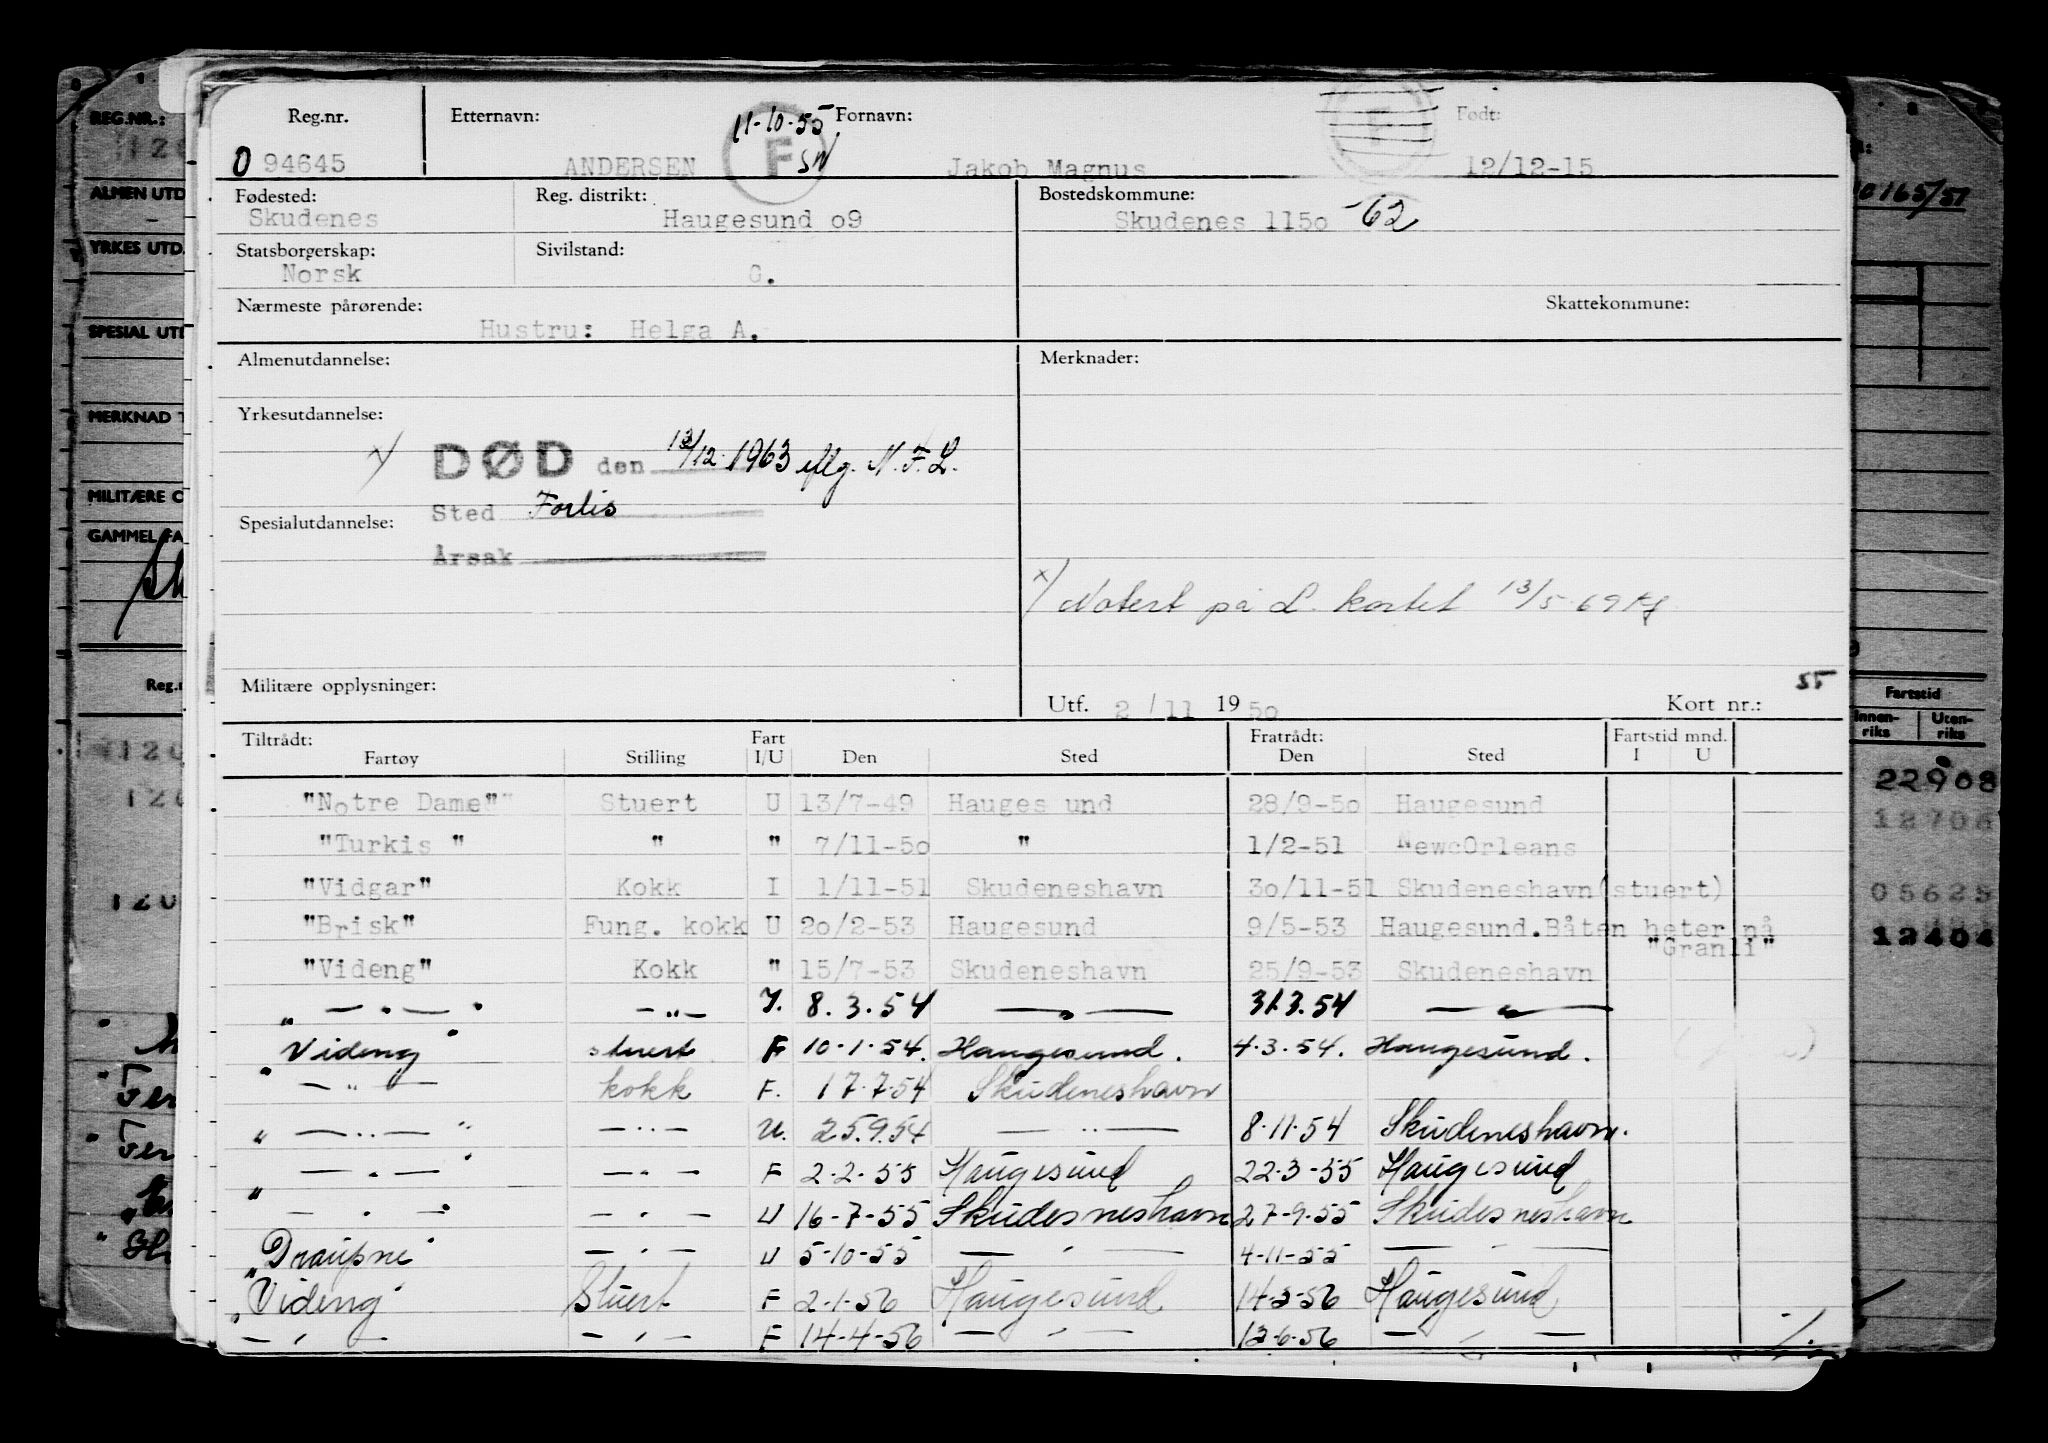 Reg.nr. Etternavn: 11-10-55 Fornavn: Født:
F SN
0 94645 ANDERSEN Jakob Magnus 12/12-15
Fødested: Reg. distrikt: Bostedskommune:
Skudenes Haugesund o9 Skudenes 115o -62
Statsborgerskap: Sivilstand:
Norsk G.
Nærmeste pårørende: Skattekommune:
Hustru: Helga A.
Almenutdannelse: Merknader:
Yrkesutdannelse:
x) DØD den 13/12-1963 iflg. N.F.L.
Spesialutdannelse: Sted Forlis
Årsak
x) Notert på L. kortet 13/5-69
Militære opplysninger: 55
Utf. 2/11 19 5o Kort nr.:
Tiltrådt: Fart Fratrådt: Fartstid mnd.
Fartøy Stilling I/U Den Sted Den Sted I U
"Notre Dame"" Stuert U 13/7-49 Hauges und 28/9-5o Haugesund
"Turkis " " " 7/11-5o " 1/2-51 NewcOrleans
"Vidgar" Kokk I 1/11-51 Skudeneshavn 3o/11-51 Skudeneshavn(stuert)
"Brisk" Fung. kokk U 2o/2-53 Haugesund 9/5-53 Haugesund.Båten heter nå
"Granli"
"Videng" Kokk " 15/7-53 Skudeneshavn 25/9-53 Skudeneshavn
„ — " — " — " — I. 8.3.54 — " — 31.3.54 — " —
"Videng" stuert F 10-1-54. Haugesund. 4.3.54. Haugesund.
" — " — kokk F. 17.7.54 Skudeneshavn
" — " — " — " — U. 25.9.54 — " — 8.11.54 Skudeneshavn.
" — " — " — " — F 2-2-55 Haugesund 22-3-55 Haugesund
" — " — " — " — U 16-7-55 Skudesneshavn 27-9-55 Skudesneshavn
"Draupne" — " — U 5-10-55 — " — 4-11-55 — " —
"Videng" Stuert F 2-1-56 Haugesund 14-3-56 Haugesund
— " — — " — F 14-4-56 — " — 13-6-56 — " —
REG.NR.:
ALMEN UTD
YRKES UTD.
SPESIAL UTD
MERKNAD T
MILITÆRE O
GAMMEL FA
Reg.n
165/51
Fartstid
Innen-riks Uten-riks
22908
12706
05625
12404